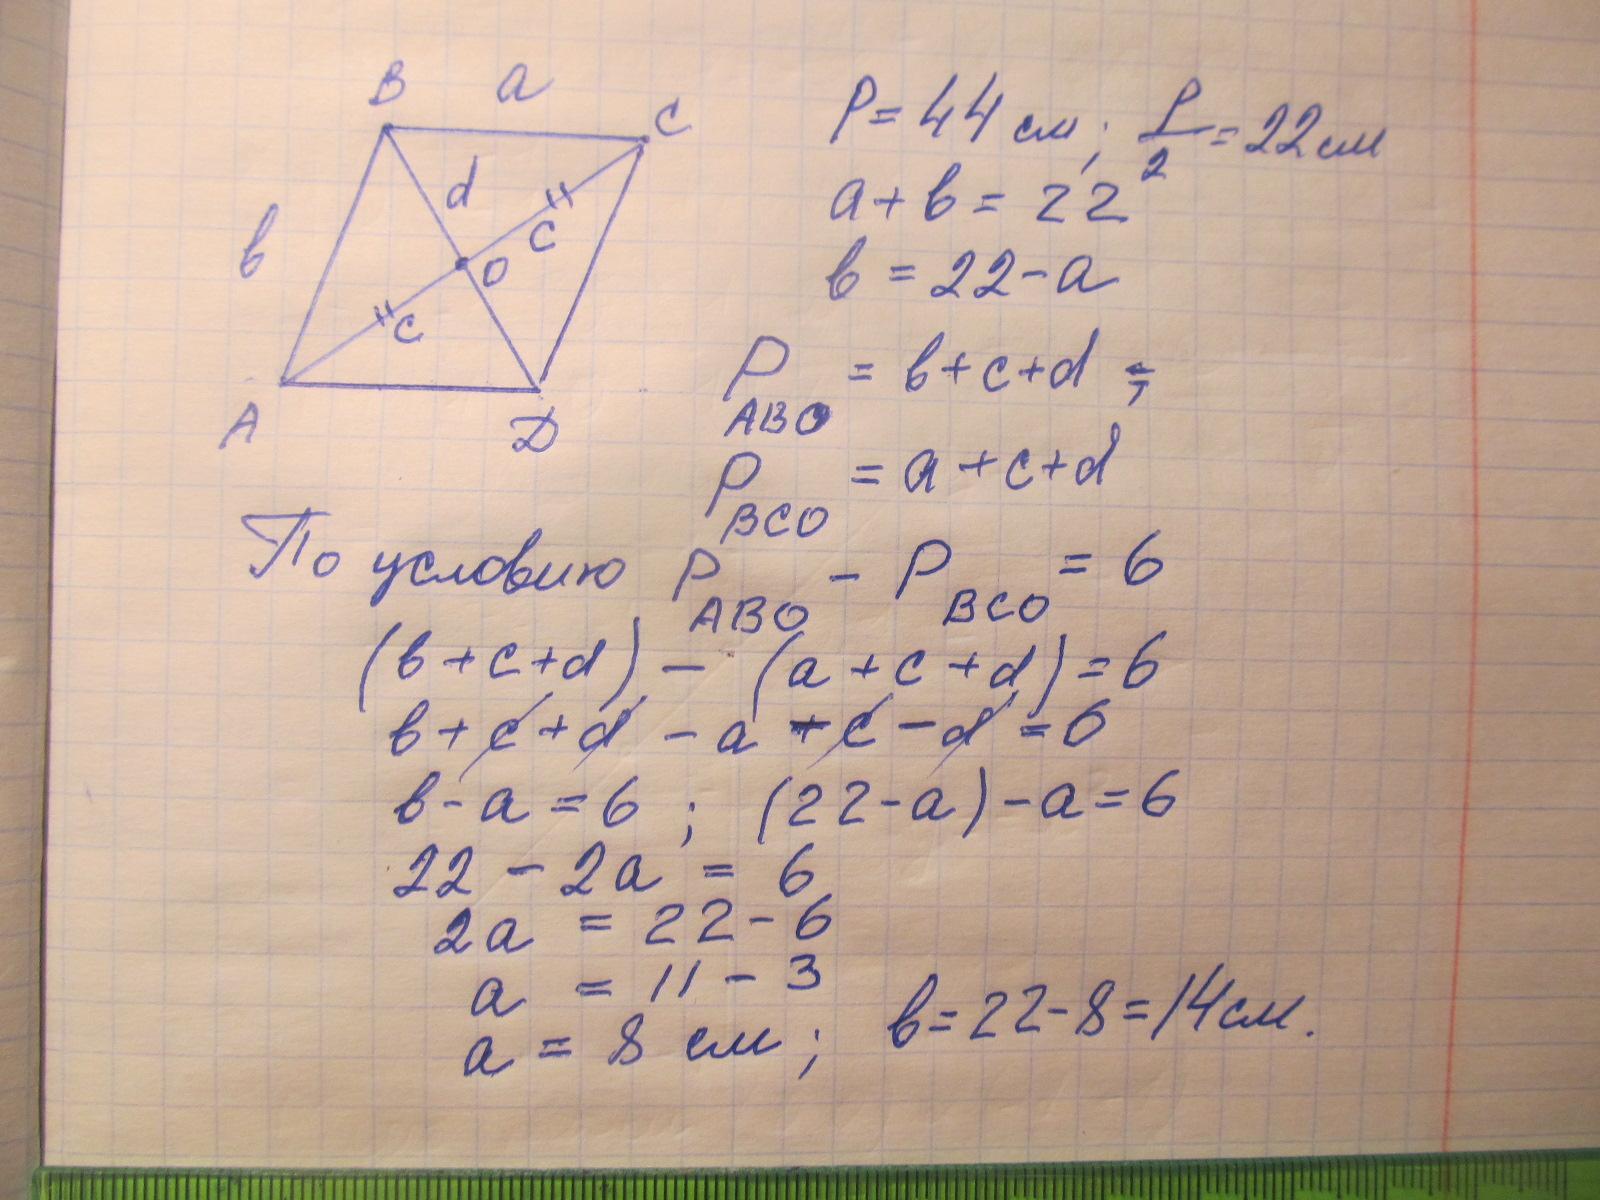 B a C
d
в
c
O
c
A D
P = 44 см; P/2 = 22 см
a + в = 22
в = 22 - a
P ABO = в + c + d ;
P BCO = a + c + d
По условию P ABO - P BCO = 6
(в + c + d) - (a + c + d) = 6
в + c + d - a - c - d = 6
в - a = 6 ; (22 - a) - a = 6
22 - 2a = 6
2a = 22 - 6
a = 11 - 3
a = 8 см ; в = 22 - 8 = 14 см.